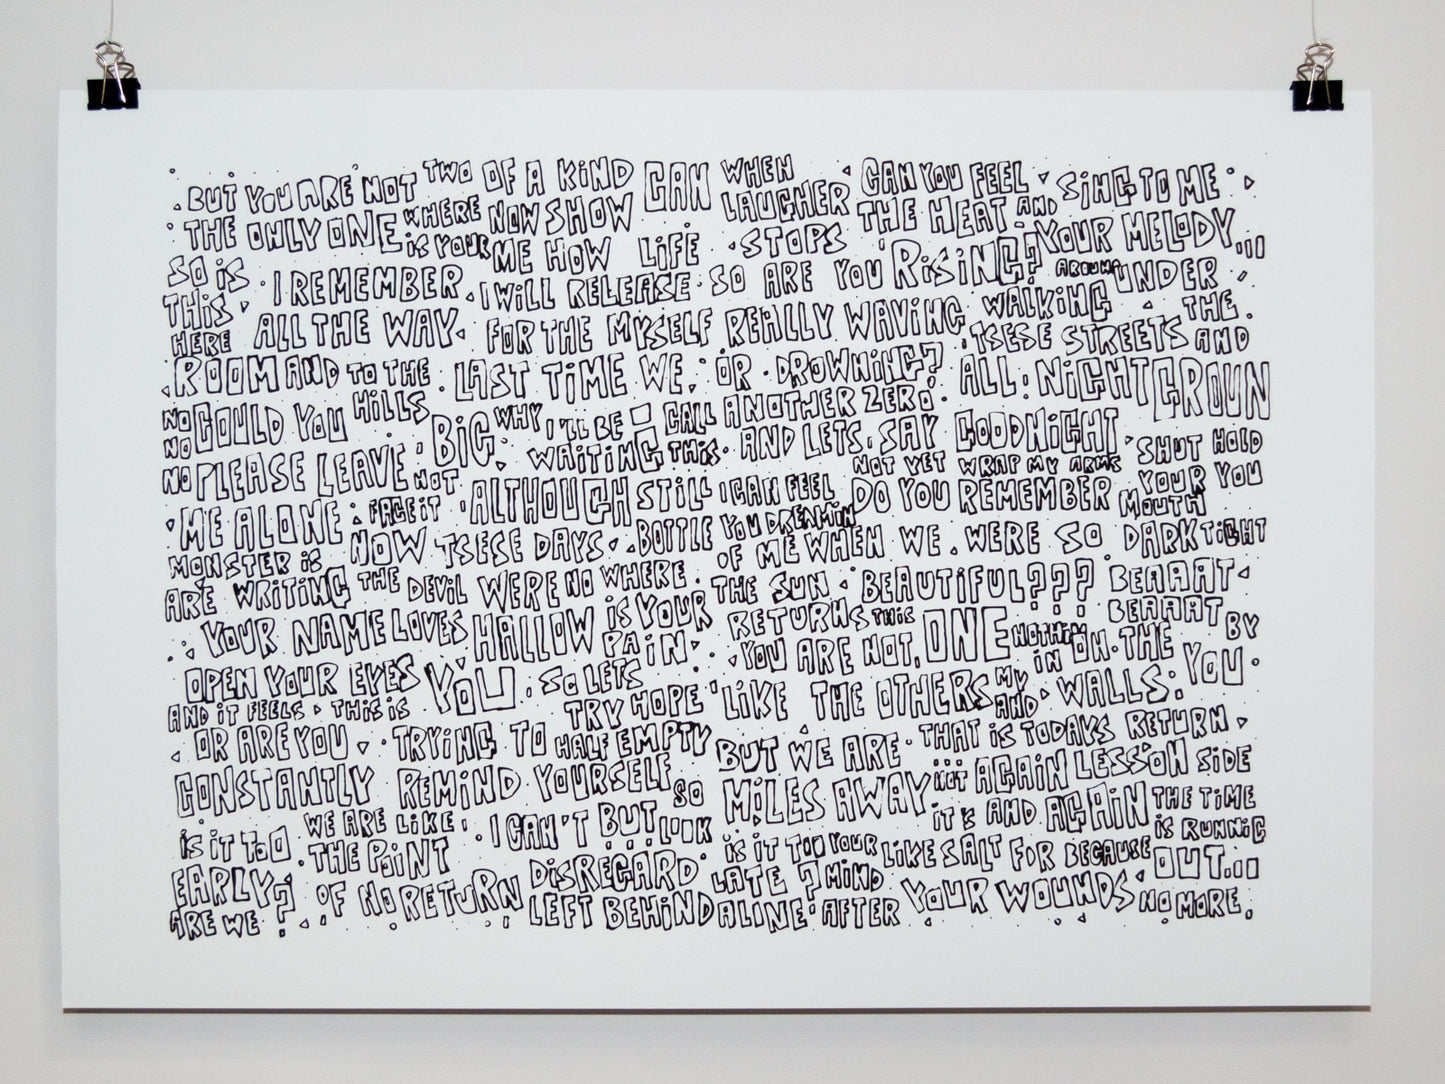 BUT YOU ARE NOT TWO OF A KIND CAN WHEN CAN YOU FEEL SING TO ME
THE ONLY ONE WHERE NOW SHOW LAUGHER THE HEAT AND YOUR MELODY...
SO IS IS YOUR ME HOW LIFE STOPS RISING? AROUND UNDER
THIS I REMEMBER I WILL RELEASE SO ARE YOU WALKING THE
HERE ALL THE WAY FOR THE MYSELF REALLY WAVING TSESE STREETS AND
ROOM AND TO THE LAST TIME WE OR DROWNING? ALL NIGHT GROUN
NO COULD YOU HILLS BIG WHY I'LL BE CALL ANOTHER ZERO GOODNIGHT SHUT HOLD
NO PLEASE LEAVE NOT WAITING THIS AND LETS SAY WRAP MY ARMS YOUR YOU
NO ME ALONE FACE IT ALTHOUGH STILL I CAN FEEL NOT YET DO YOU REMEMBER MOUTH
MONSTER IS NOW TSESE DAYS BOTTLE YOU DREAMIN WHEN WE WERE SO DARK TIGHT
ARE WRITING THE DEVIL WERE NO WHERE OF ME THE SUN BEAUTIFUL??? BEAAAT
YOUR NAME LOVES HALLOW IS YOUR RETURNS THIS ONE NOTHIN ON THE BEAAAT BY
OPEN YOUR EYES YOU PAIN YOU ARE NOT IN WALLS YOU
AND IT FEELS THIS IS SO LETS TRY HOPE LIKE THE OTHERS MY AND
OR ARE YOU TRYING TO HALF EMPTY BUT WE ARE THAT IS TODAYS RETURN
CONSTANTLY REMIND YOURSELF SO MILES AWAY NOT AGAIN LESSON SIDE
IS IT TOO WE ARE LIKE I CAN'T BUT LOOK IS IT TOO YOUR IT'S AND AGAIN THE TIME
EARLY? THE POINT DISREGARD LATE? MIND LIKE SALT FOR BECAUSE IS RUNNIG OUT...
ARE WE OF NO RETURN LEFT BEHIND ALINE AFTER YOUR WOUNDS NO MORE.